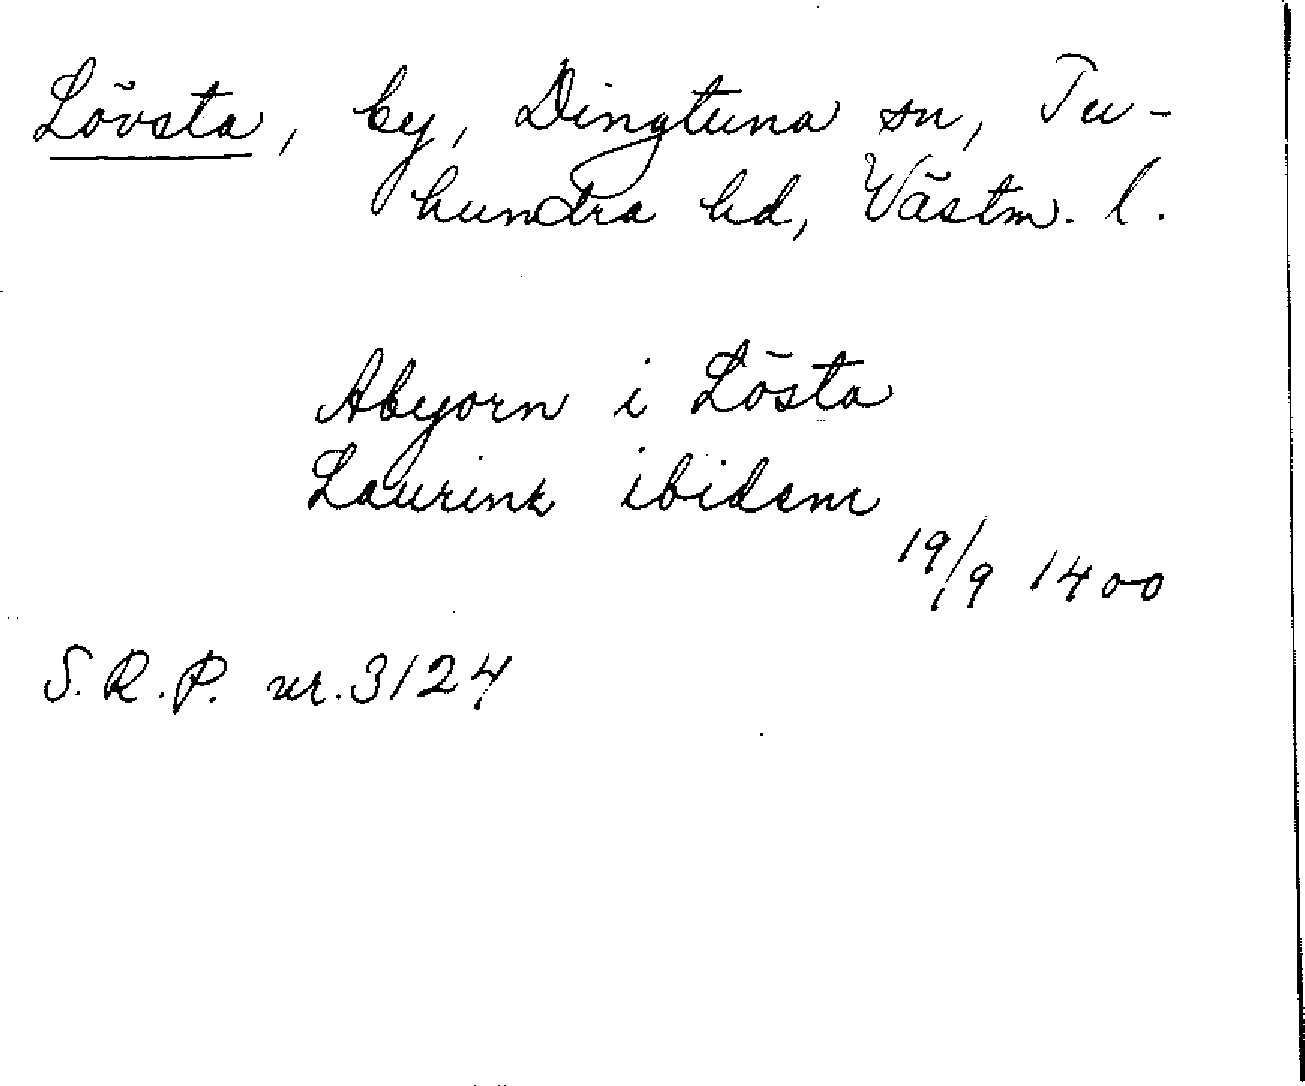 Lövsta, by, Dingtuna sn, Tu-
hundra hd, Västm. l.
Abyorn i Lösta
Laurinz ibidem
19/9 1400
S.R.P. nr. 3124